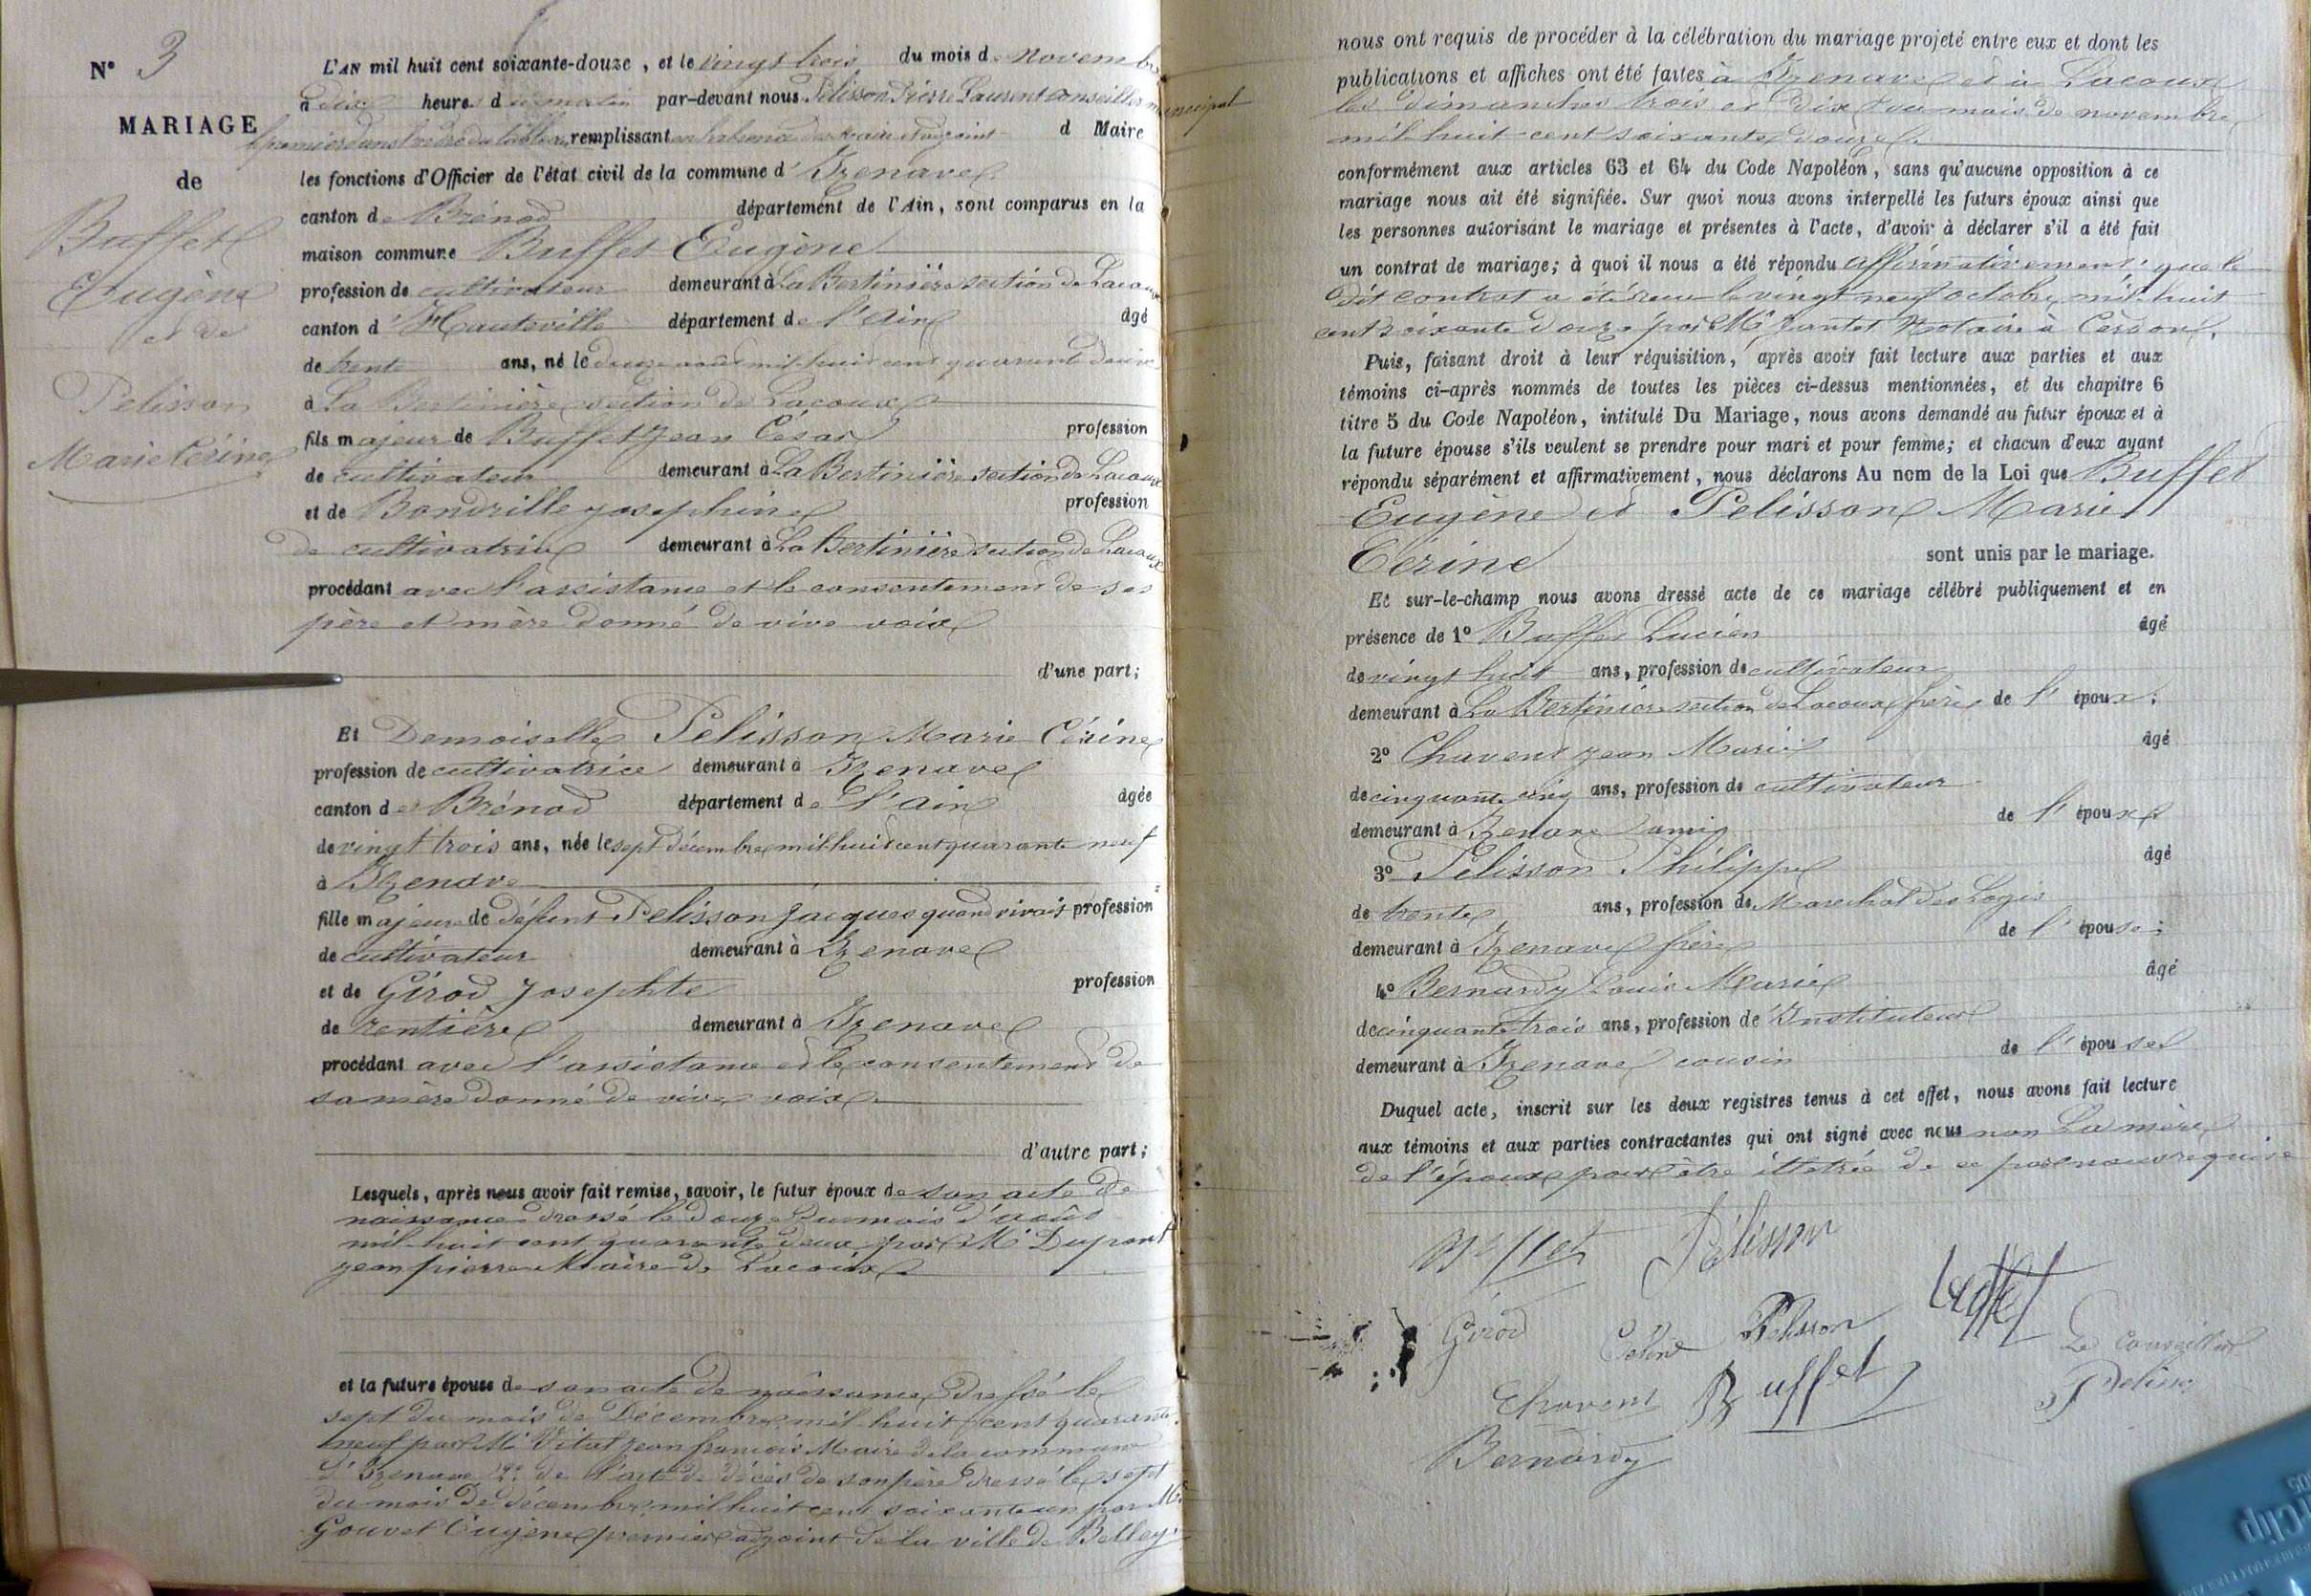 N° 3
MARIAGE
de
Buffet
Eugène
et de
Pelisson
Marie Cérine
L'AN mil huit cent soixante-douze, et le vingt trois du mois de Novembre
à dix heures du matin par-devant nous Pélisson Pierre Laurent conseiller municipal
premier dans l'ordre du tableau, remplissant en l'absence du Maire et adjoint d Maire
les fonctions d'Officier de l'état civil de la commune d'Izenave
canton de Brénod département de l'Ain, sont comparus en la
maison commune Buffet Eugène
profession de cultivateur demeurant à La Bertinière section de Lacoux
canton d'Hauteville département de l'Ain âgé
de trente ans, né le douze août mil huit cent quarante deux
à La Bertinière section de Lacoux
fils majeur de Buffet Jean César profession
de cultivateur demeurant à La Bertinière section de Lacoux
et de Bondrille Josephine profession
de cultivatrice demeurant à La Bertinière section de Lacoux
procédant avec l'assistance et le consentement de ses
père et mère donné de vive voix
d'une part;
Et Demoiselle Pelisson Marie Cérine
profession de cultivatrice demeurant à Izenave
canton de Brénod département de l'Ain âgée
de vingt trois ans, née le sept décembre mil huit cent quarante neuf
à Izenave
fille majeure de défunt Pelisson Jacques quand vivait profession
de cultivateur demeurant à Izenave
et de Girod Josephte profession
de rentière demeurant à Izenave
procédant avec l'assistance et le consentement de
sa mère donné de vive voix
d'autre part;
Lesquels, après nous avoir fait remise, savoir, le futur époux de son acte de
naissance dressé le douze du mois d'août
mil huit cent quarante deux par Mr Dupont
Jean pierre Maire de Lacoux
et la future épouse de son acte de naissance dressé le
sept du mois de Décembre mil huit cent quarante
neuf par Mr Vital Jean françois Maire de la commune
d'Izenave 2° de l'acte de décès de son père dressé le sept
du mois de décembre mil huit cent soixante un par Mr
Gouvet Eugène premier adjoint de la ville de Belley
nous ont requis de procéder à la célébration du mariage projeté entre eux et dont les
publications et affiches ont été faites à Izenave et à Lacoux
les dimanches trois et dix du mois de novembre
mil huit cent soixante douze
conformément aux articles 63 et 64 du Code Napoléon, sans qu'aucune opposition à ce
mariage nous ait été signifiée. Sur quoi nous avons interpellé les futurs époux ainsi que
les personnes autorisant le mariage et présentes à l'acte, d'avoir à déclarer s'il a été fait
un contrat de mariage; à quoi il nous a été répondu affirmativement que le
dit contrat a été reçu le vingt neuf octobre mil huit
cent soixante douze par Me Jantet Notaire à Cerdon.
Puis, faisant droit à leur réquisition, après avoir fait lecture aux parties et aux
témoins ci-après nommés de toutes les pièces ci-dessus mentionnées, et du chapitre 6
titre 5 du Code Napoléon, intitulé Du Mariage, nous avons demandé au futur époux et à
la future épouse s'ils veulent se prendre pour mari et pour femme; et chacun d'eux ayant
répondu séparément et affirmativement, nous déclarons Au nom de la Loi que Buffet
Eugène et Pelisson Marie
Cérine sont unis par le mariage.
Et sur-le-champ nous avons dressé acte de ce mariage célébré publiquement et en
présence de 1° Buffet Lucien âgé
de vingt huit ans, profession de cultivateur
demeurant à La Bertinière section de Lacoux frère de l'époux;
2° Chavent Jean Marie âgé
de cinquante cinq ans, profession de cultivateur
demeurant à Izenave ami de l'époux
3° Pelisson Philippe âgé
de trente ans, profession de Marechal des Logis
demeurant à Izenave frère de l'épouse;
4° Bernardy Louis Marie âgé
de cinquante trois ans, profession de Instituteur
demeurant à Izenave cousin de l'épouse
Duquel acte, inscrit sur les deux registres tenus à cet effet, nous avons fait lecture
aux témoins et aux parties contractantes qui ont signé avec nous non La mère
de l'époux pour être illetrée de ce par nous requise
Buffet Pélisson
Girod Pelisson Buffet Le Conseiller
Chavent Buffet Pelisson
Bernardy